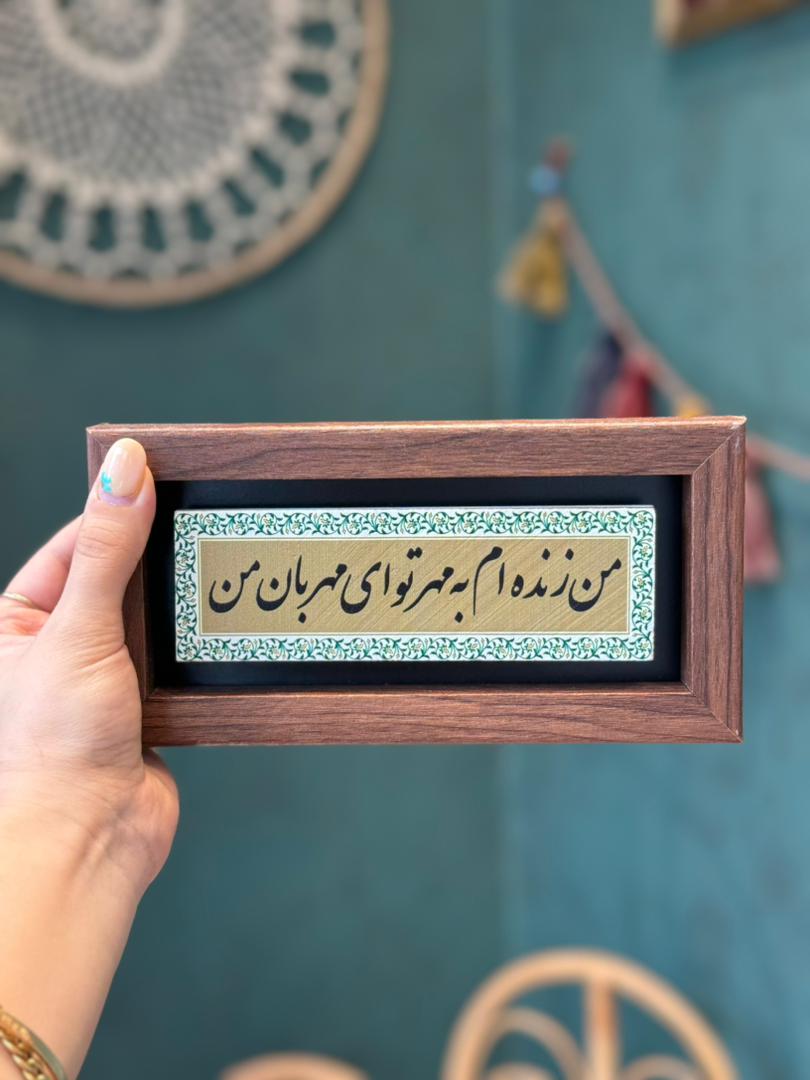 من زنده ام به مهر تو ای مهربان من